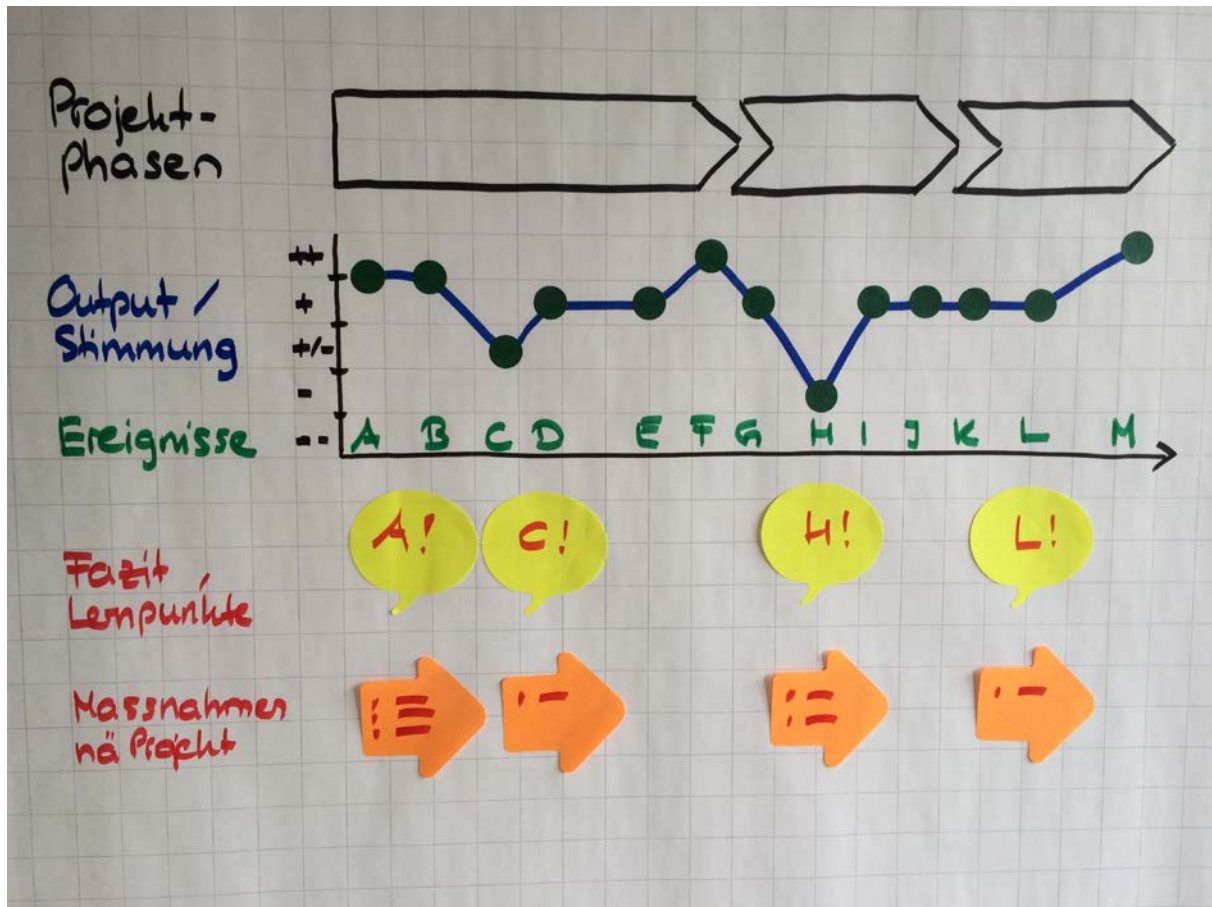 Projekt-
phasen
Output /
Stimmung
++
+
+/-
-
--
Ereignisse
A B C D E F G H I J K L M
Fazit,
Lernpunkte
A! C! H! L!
Massnahmen
nä Projekt